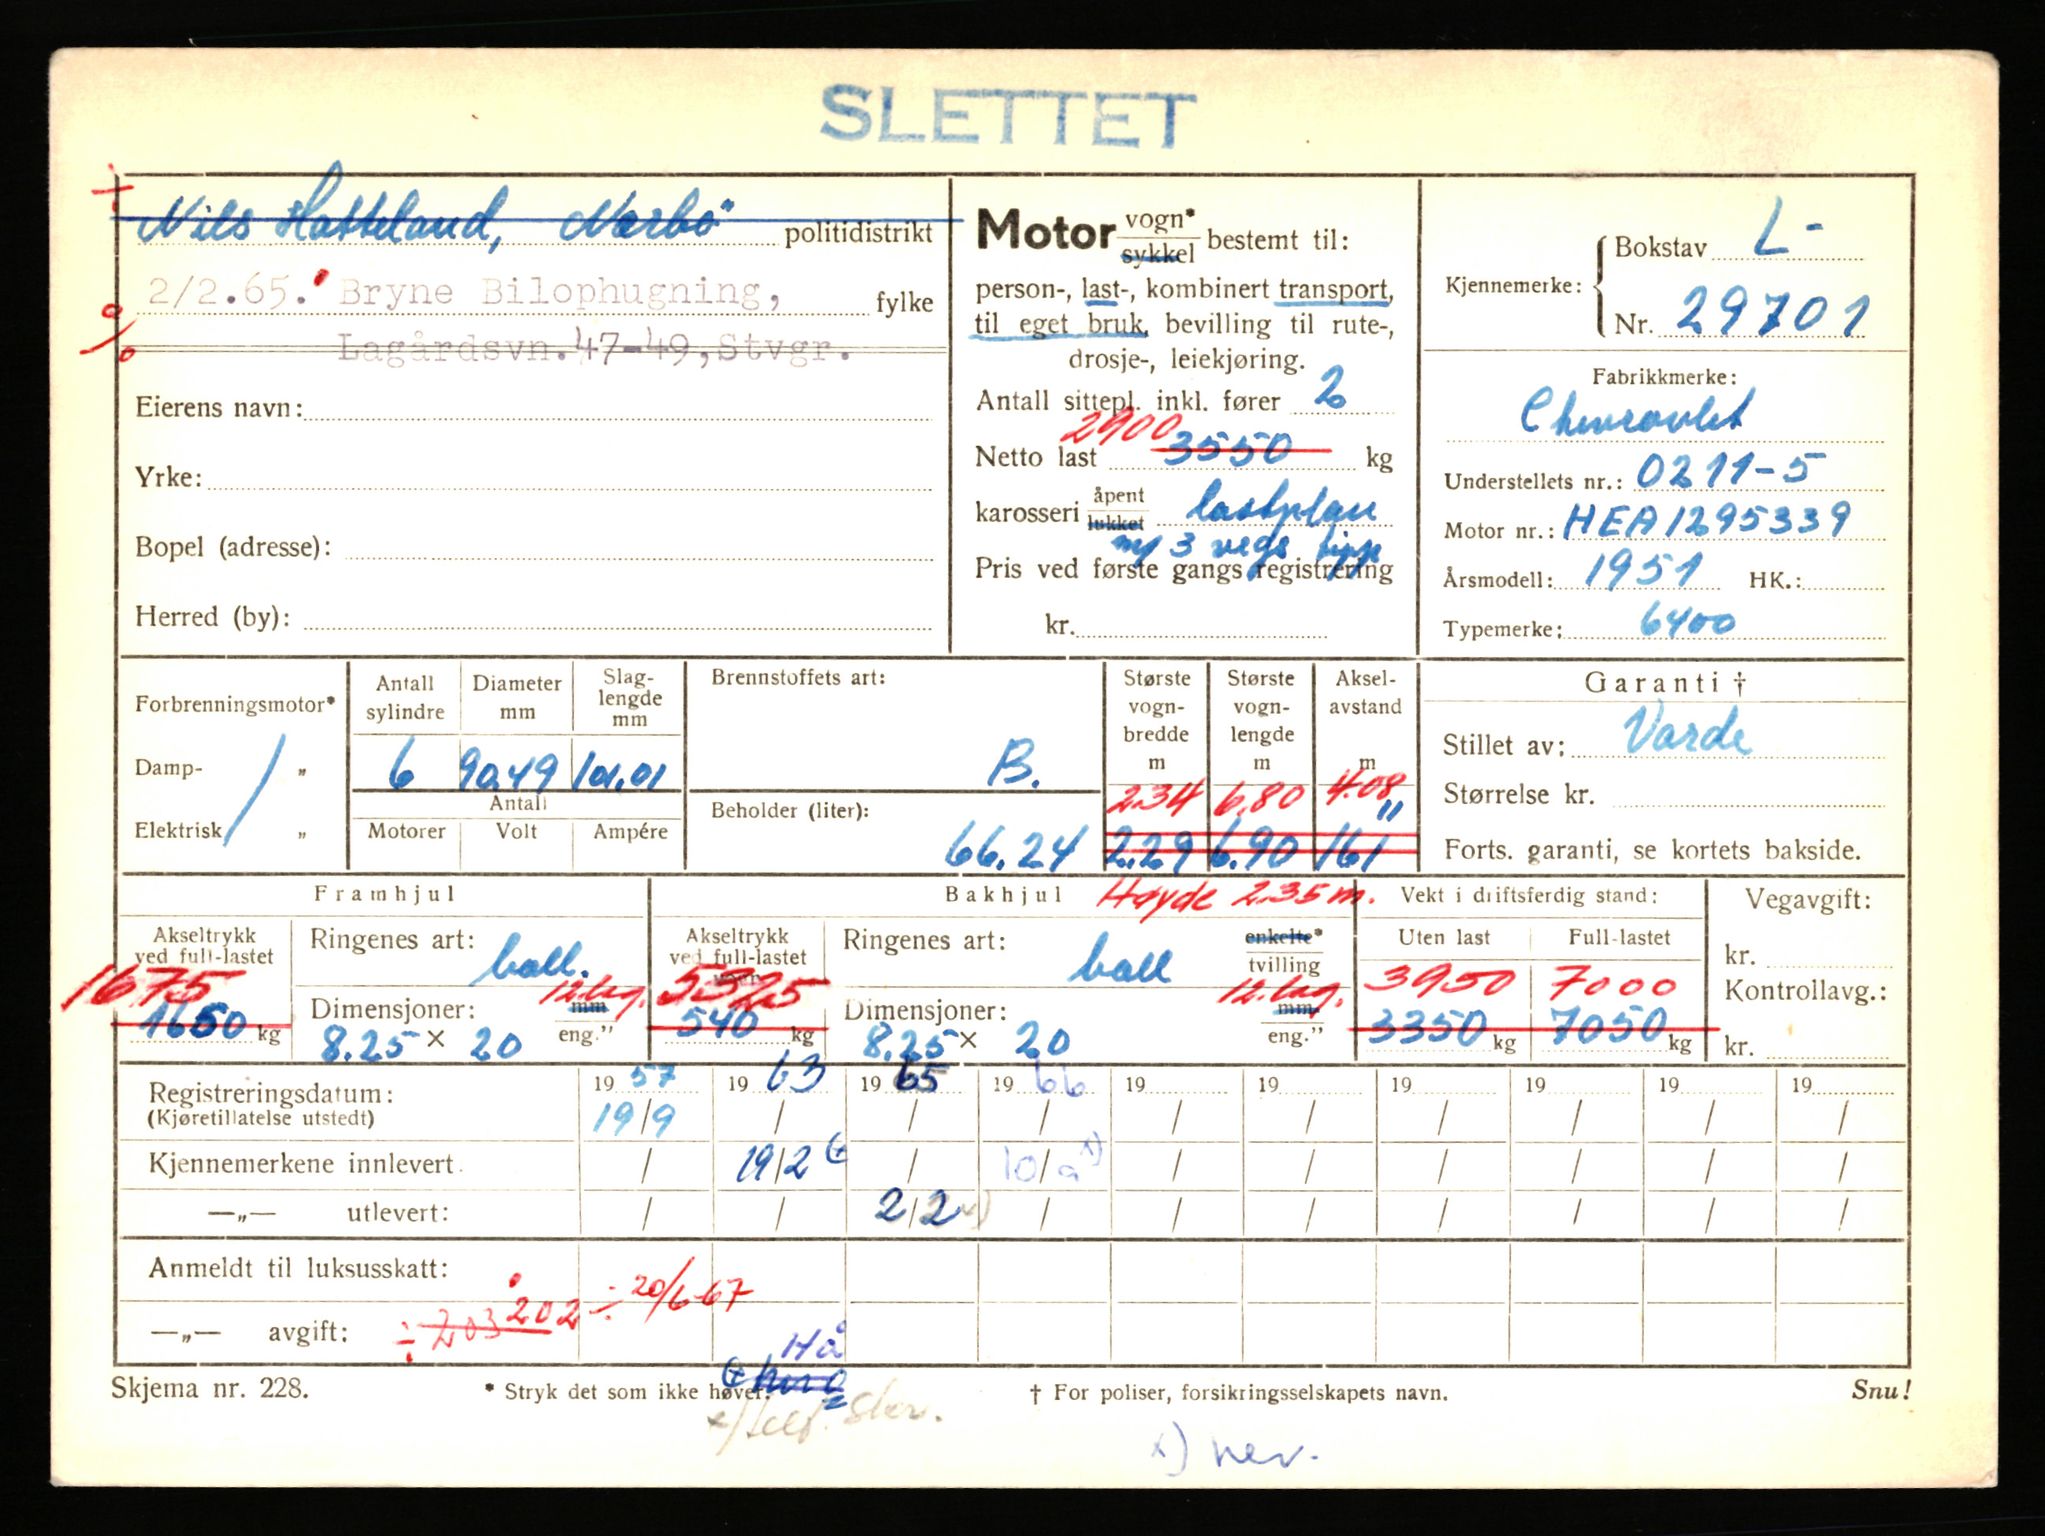 SLETTET
Nils Hatteland, Nærbö politidistrikt
2/2.65. Bryne Bilophugning, fylke
Lagårdsvn.47-49,Stvgr.
Eierens navn:
Yrke:
Bopel (adresse):
Herred (by):
Motor vogn* sykkel bestemt til:
person-, last-, kombinert transport,
til eget bruk, bevilling til rute-,
drosje-, leiekjøring.
Antall sittepl. inkl. fører 2
2900
Netto last 3550 kg
karosseri åpent lukket lastplan
m/ 3 vegs tipp
Pris ved første gangs registrering
kr.
Kjennemerke: Bokstav L-
Nr. 29701
Fabrikkmerke:
Chevrovlet
Understellets nr.: 0211-5
Motor nr.: HEA1295339
Årsmodell: 1951 HK.:
Typemerke: 6400
Forbrenningsmotor*
Damp- „
Elektrisk „
Antall sylindre
Diameter mm
Slag-lengde mm
6 90.49 101.01
Antall
Motorer Volt Ampére
Brennstoffets art:
B.
Beholder (liter):
66.24
Største vogn-bredde m
Største vogn-lengde m
Aksel-avstand m
2.34 6.80 4.08
2.29 6.90 161"
Garanti †
Stillet av: Varde
Størrelse kr.
Forts. garanti, se kortets bakside.
Framhjul
Akseltrykk ved full-lastet
1675
1650 kg
Ringenes art: ball.
Dimensjoner: 12.lag. mm
8.25 × 20 eng."
Bakhjul Høyde 2.35 m.
Akseltrykk ved full-lastet
5325
540 kg
Ringenes art: ball enkelte* tvilling
Dimensjoner: 12.lag. mm
8.25 × 20 eng."
Vekt i driftsferdig stand:
Uten last Full-lastet
3950 7000
3350 kg 7050 kg
Vegavgift:
kr.
Kontrollavg.:
kr.
Registreringsdatum: 19 57 19 63 19 65 19 66 19 19 19 19 19 19
(Kjøretillatelse utstedt) 19/9 / / / / / / / / /
Kjennemerkene innlevert / 19/2 / 10/9 x) / / / / / /
—„— utlevert: / / 2/2 x) / / / / / / /
Anmeldt til luksusskatt:
—„— avgift: ÷ 203 202 ÷ 20/6-67
Hå
Skjema nr. 228. * Stryk det som ikke høver. † For poliser, forsikringsselskapets navn. Snu!
x) ner.